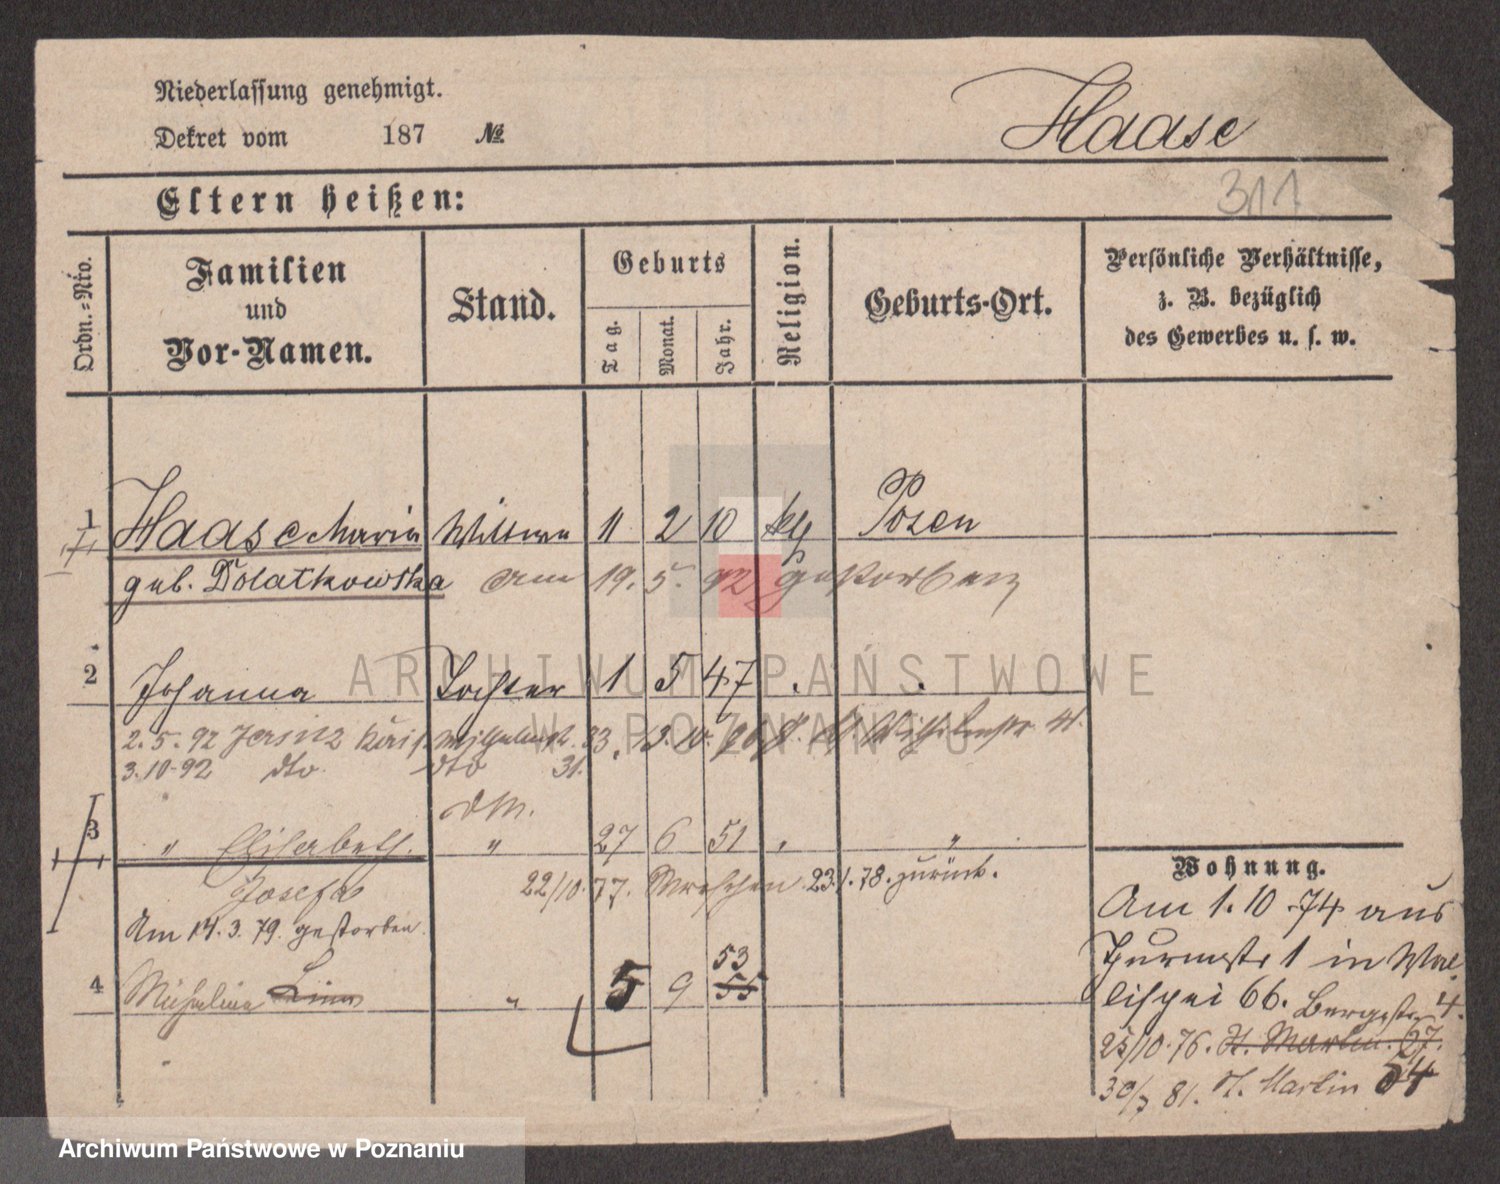 Niederlassung genehmigt.
Haase
Dekret vom 187 №
311
Eltern heißen:
Ordn.-Nro.
Familien
und
Vor-Namen.
Stand.
Geburts
Tag.
Monat.
Jahr.
Religion.
Geburts-Ort.
Persönliche Verhältnisse,
z. B. bezüglich
des Gewerbes u. s. w.
1 Haase Maria Wittwe 11 2 10 kth Posen
geb. Dolatkowska am 19. 5. 92 gestorben
2 Johanna Tochter 1 5 47
ARCHIWUM PAŃSTWOWE
W POZNANIU
2. 5. 92 Jersitz 33. 13. 10.
3. 10. 92 dto dto 31.
3 " Elisabeth. " 27 6 51 " "
Josefa 22/10. 77. Wreschen 23.1.78. zurück.
Am 14. 3. 79. gestorben.
4 Michalina " 5 9 53
55
Wohnung.
Am 1. 10. 74 aus
Thurmstr 1 in Wal-
lischei 66. Bergstr 4.
25/10. 76. St. Martin. 27.
30/7 81. St. Martin 54
Archiwum Państwowe w Poznaniu